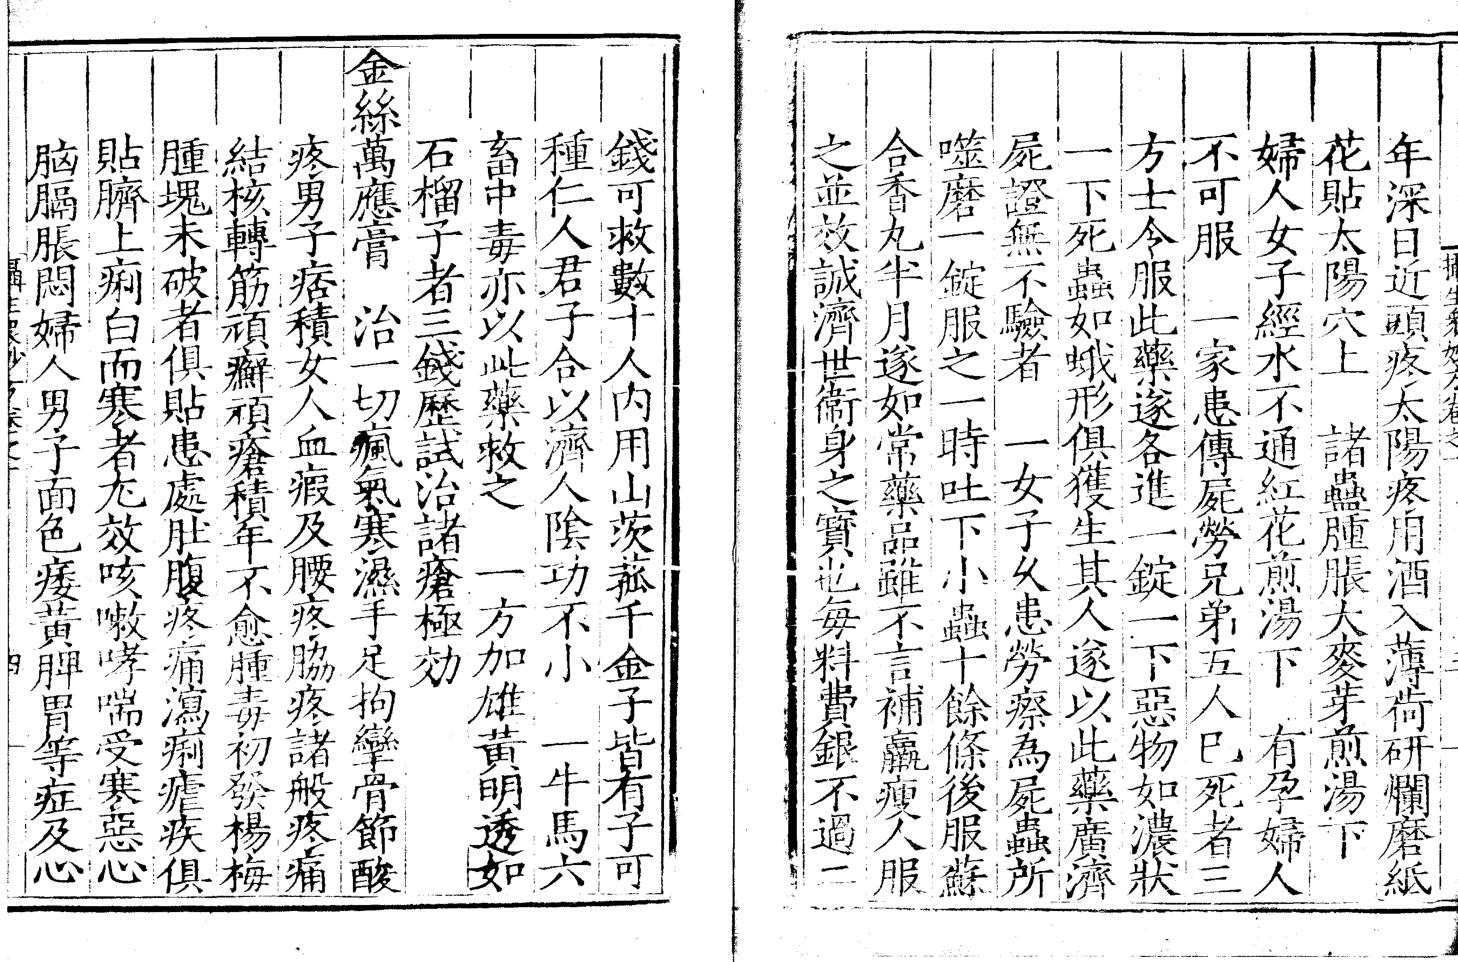 攝生眾妙方卷之一
三
年深日近頭疼太陽疼用酒入薄荷研爛磨紙
花貼太陽穴上　諸蠱腫脹大麥芽煎湯下
婦人女子經水不通紅花煎湯下　有孕婦人
不可服　一家患傳屍勞兄弟五人巳死者三
方士令服此藥遂各進一錠一下惡物如濃狀
一下死蟲如蛾形俱獲生其人遂以此藥廣濟
屍證無不驗者　一女子久患勞瘵為屍蟲所
噬磨一錠服之一時吐下小蟲十餘條後服蘇
合香丸半月遂如常藥品雖不言補羸瘦人服
之並效誠濟世衞身之寳也每料費銀不過二
錢可救數十人内用山茨菰千金子皆有子可
種仁人君子合以濟人陰功不小　一牛馬六
畜中毒亦以此藥救之　一方加雄黃明透如
石榴子者三錢歷試治諸瘡極効
金絲萬應膏　治一切瘋氣寒濕手足拘攣骨節酸
疼男子痞積女人血瘕及腰疼脇疼諸般疼痛
結核轉筋頑癬頑瘡積年不愈腫毒初發楊梅
腫塊未破者俱貼患處肚腹疼痛瀉痢瘧疾俱
貼臍上痢白而寒者尤效咳嗽哮喘受寒惡心
脑膈脹悶婦人男子面色痿黃脾胃等症及心
攝生眾妙方卷之一
四